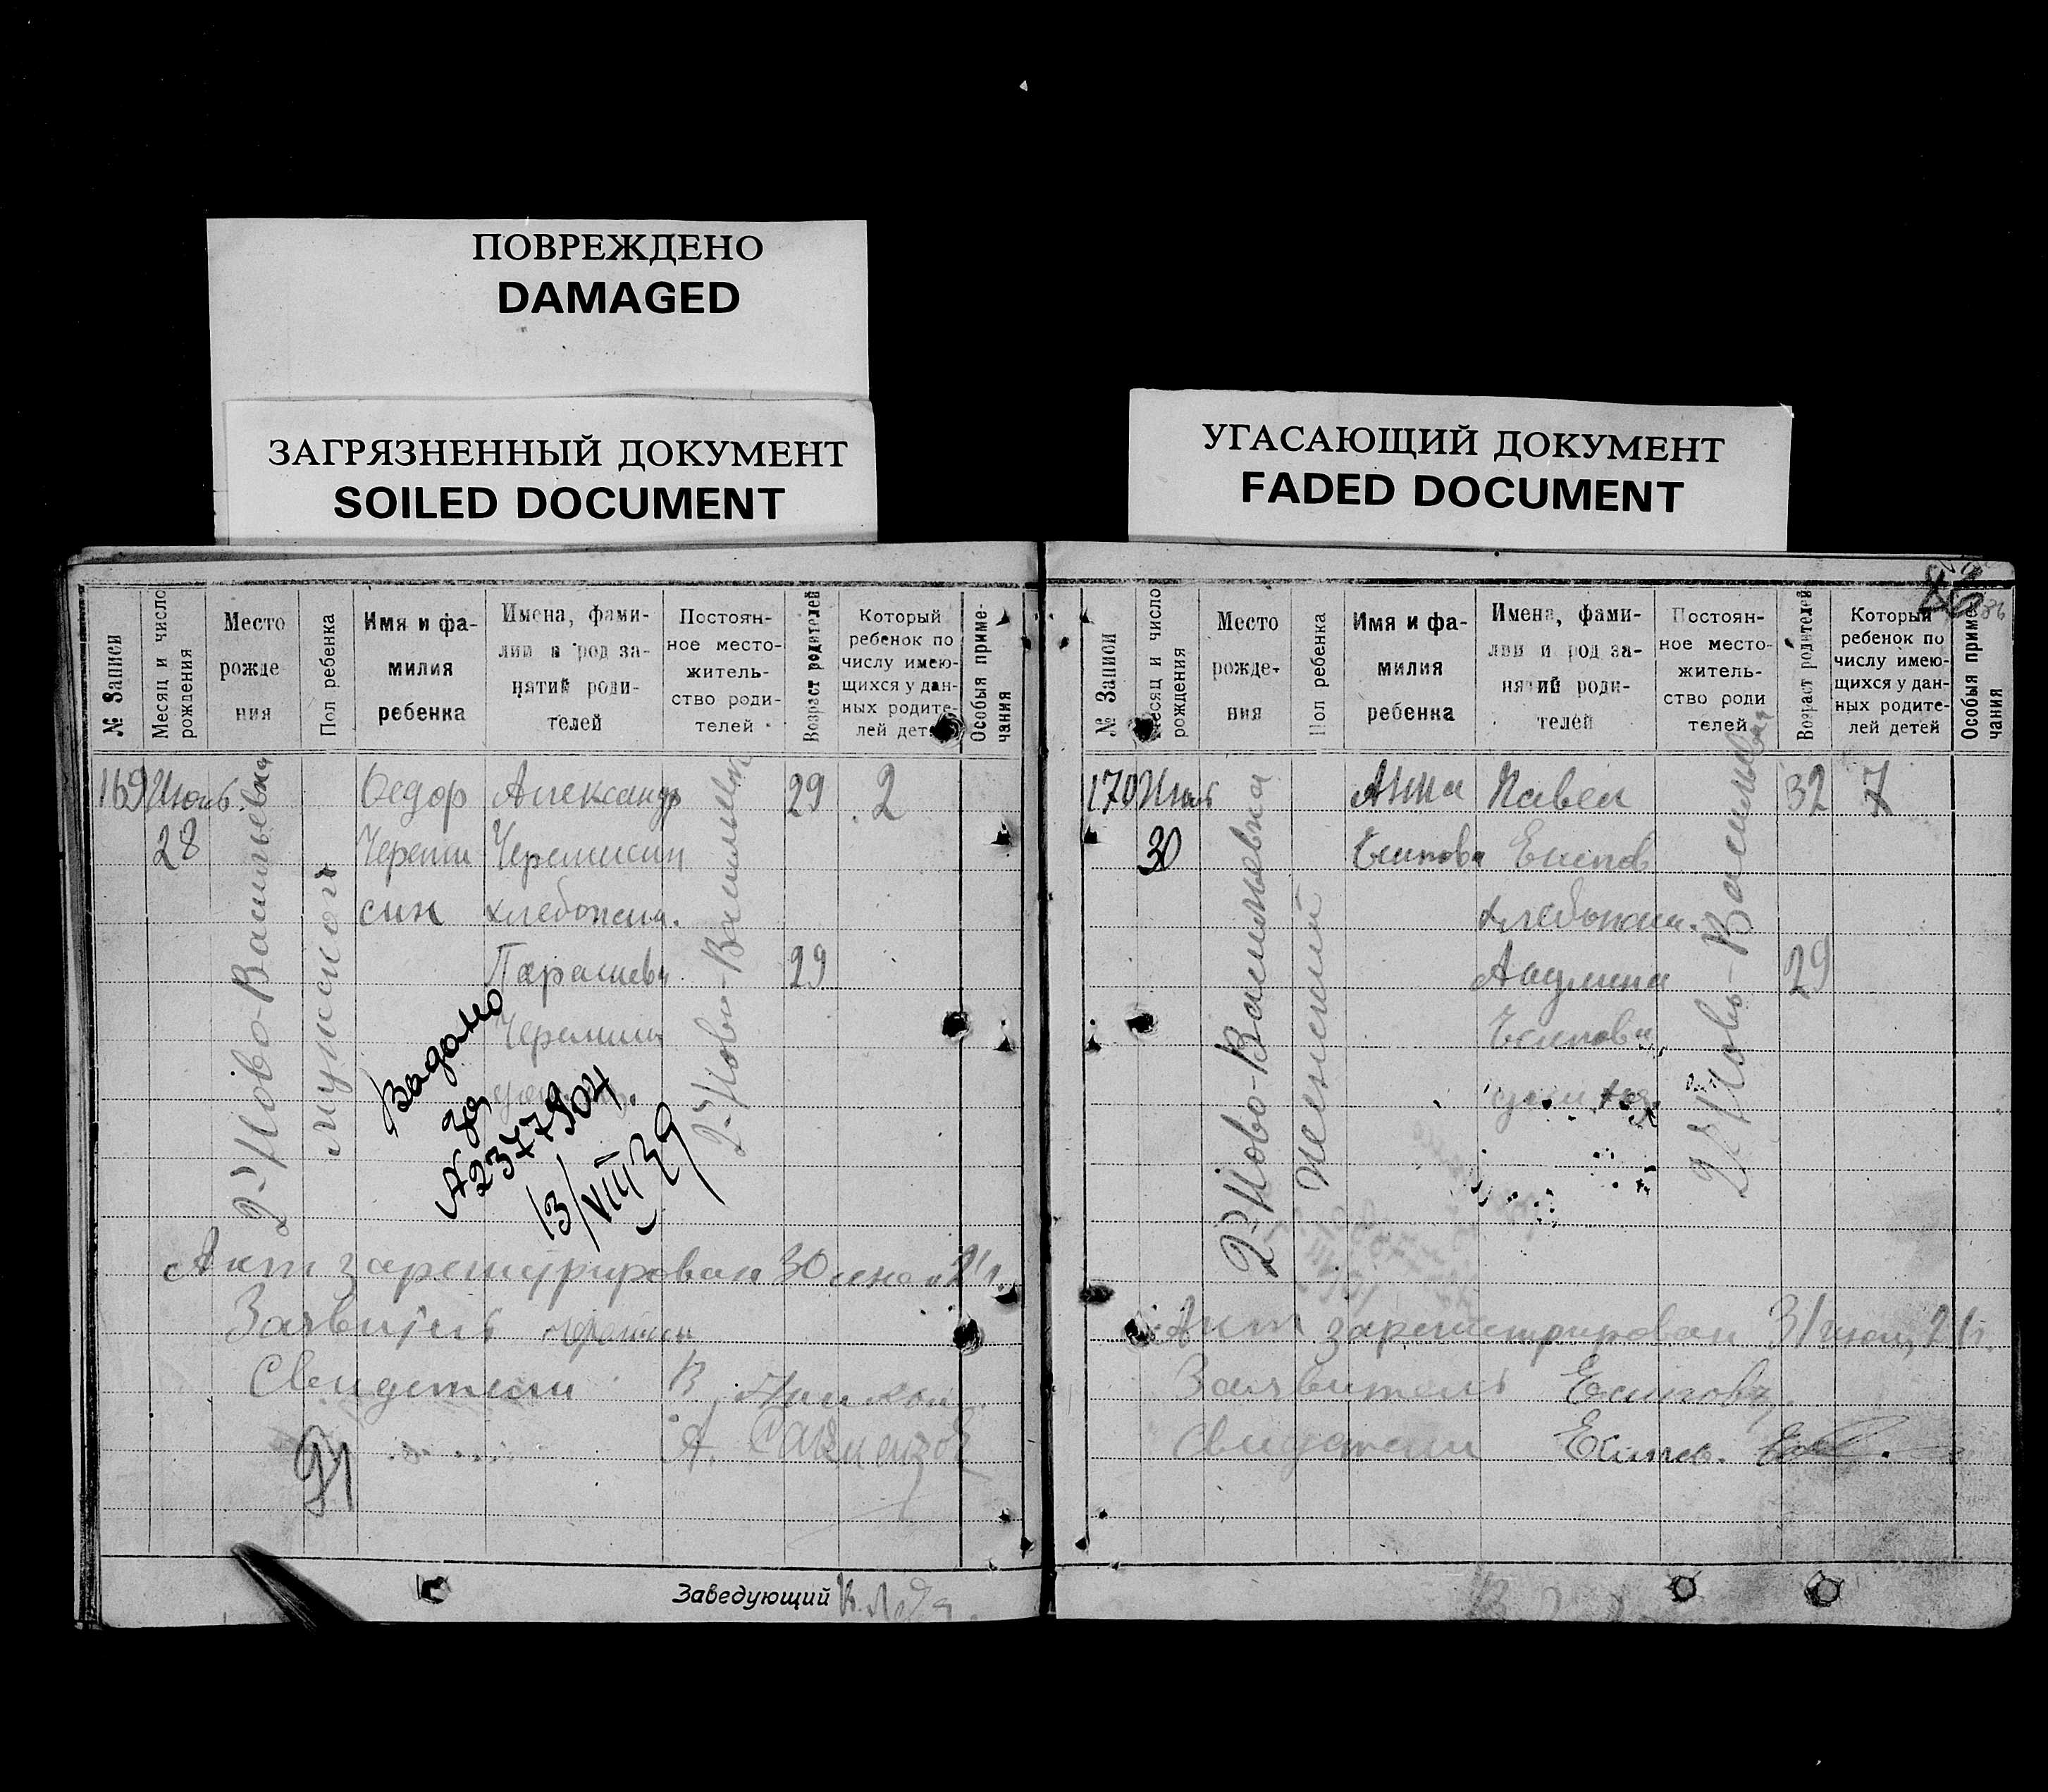 ПОВРЕЖДЕНО
DAMAGED
ЗАГРЯЗНЕННЫЙ ДОКУМЕНТ
SOILED DOCUMENT
УГАСАЮЩИЙ ДОКУМЕНТ
FADED DOCUMENT
№ Записи
Месяц и число рождения
Место рожде-ния
Пол ребенка
Имя и фа-милия ребенка
Имена, фами-лии и род за-нятий роди-телей
Постоян-ное место-житель-ство роди-телей
Возраст родителей
Который ребенок по числу имею-щихся у дан-ных родите-лей дет
Особыя приме-чания
169 Июнь Федор Александр 29 2
28 Череми Черемисин
син хлебопаш.
Парасковь 29
2-Ново-Васильевка
мужской
2-Ново-Васильевк
Выдано
А2377904
13/VIII 39
Акт зарегистрирован 30 июня 21 г.
Заявитель
Свидетели В.
А.
21
Заведующий
№ Записи
Месяц и число рождения
Место рожде-ния
Пол ребенка
Имя и фа-милия ребенка
Имена, фами-лии и род за-нятий роди-телей
Постоян-ное место-житель-ство роди телей
Возраст родителей
Который ребенок по числу имею-щихся у дан-ных родите-лей детей
Особыя приме чания
170 Анна Павел 32 7
30 Есипова Есипов
хлебопаш.
29
Есипова
2-Ново-Васильевка
женский
2-Ново-Васильевка
Акт зарегистрирован 31 21 г.
Заявитель Есипов
Свидетели Есипов.